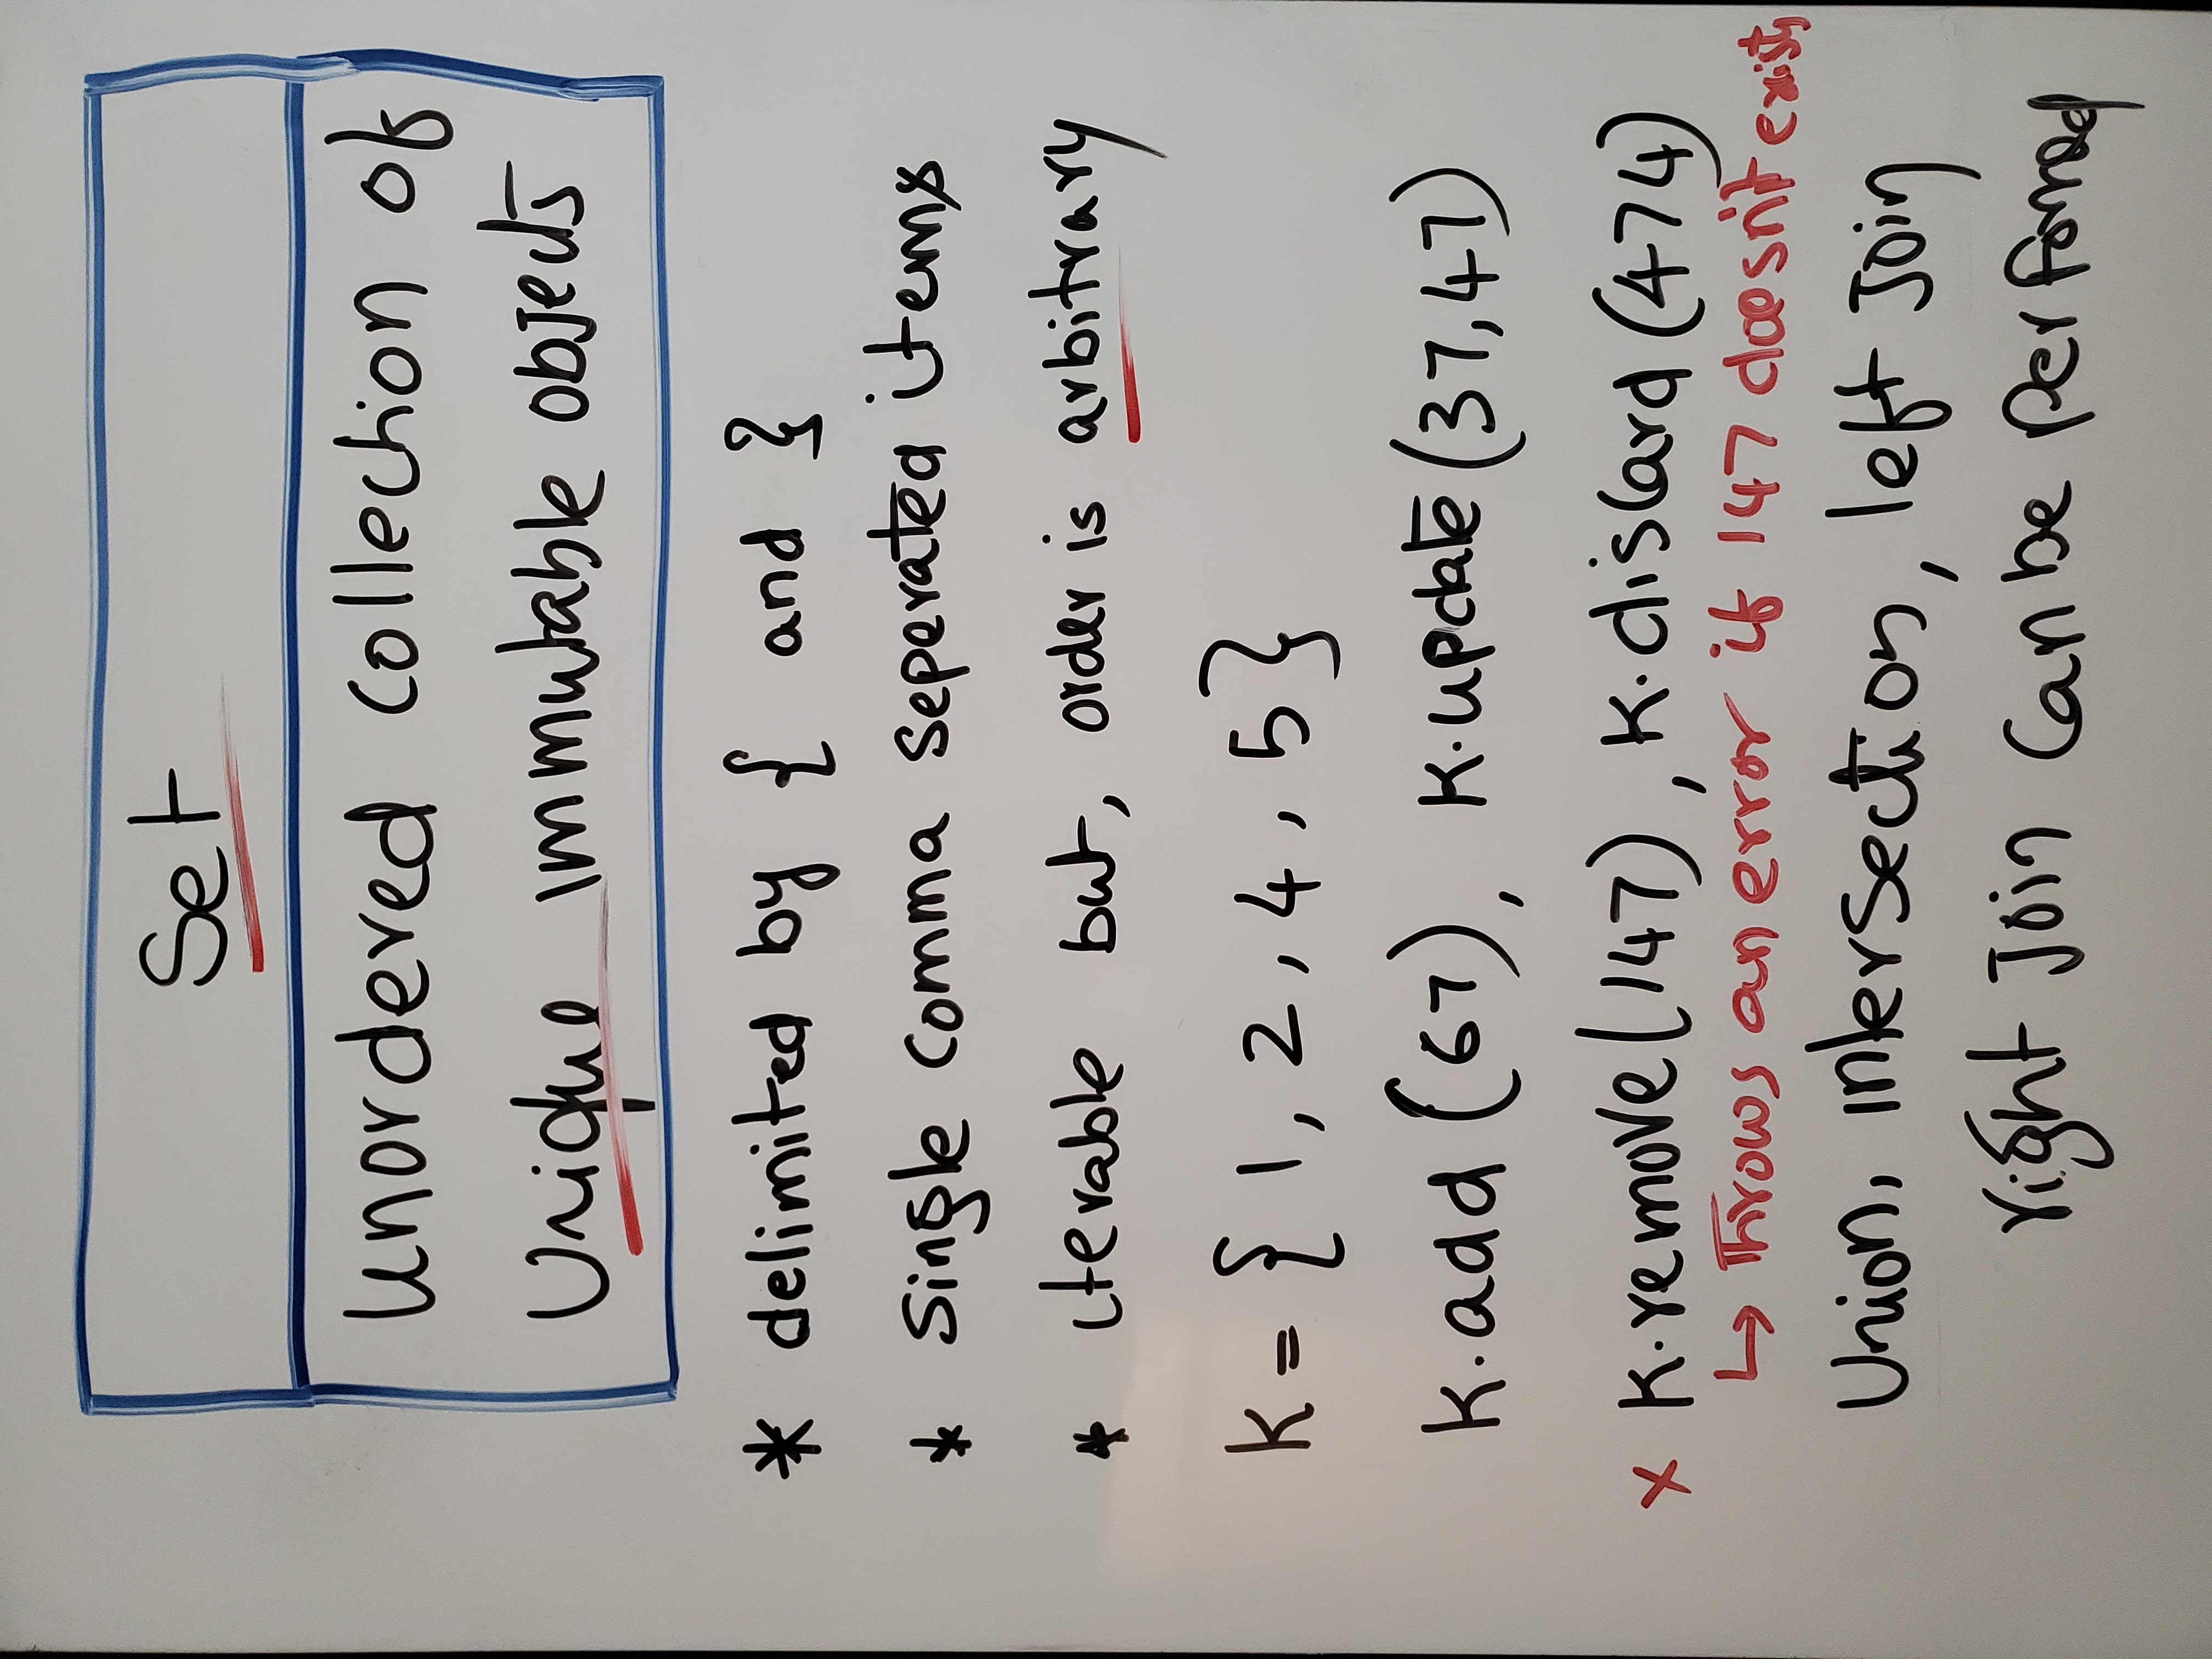 Set
Unordered collection of
Unique immutable objects
* delimited by { and }
* Single comma seperated items
* iterable but, order is arbitrary
K = { 1, 2, 4, 5}
K.add (67), K.update (37,47)
x K.remove(147), K.discard (474)
↳ Throws an error if 147 doesn't exists
Union, intersection, left Join
right Join can be performed